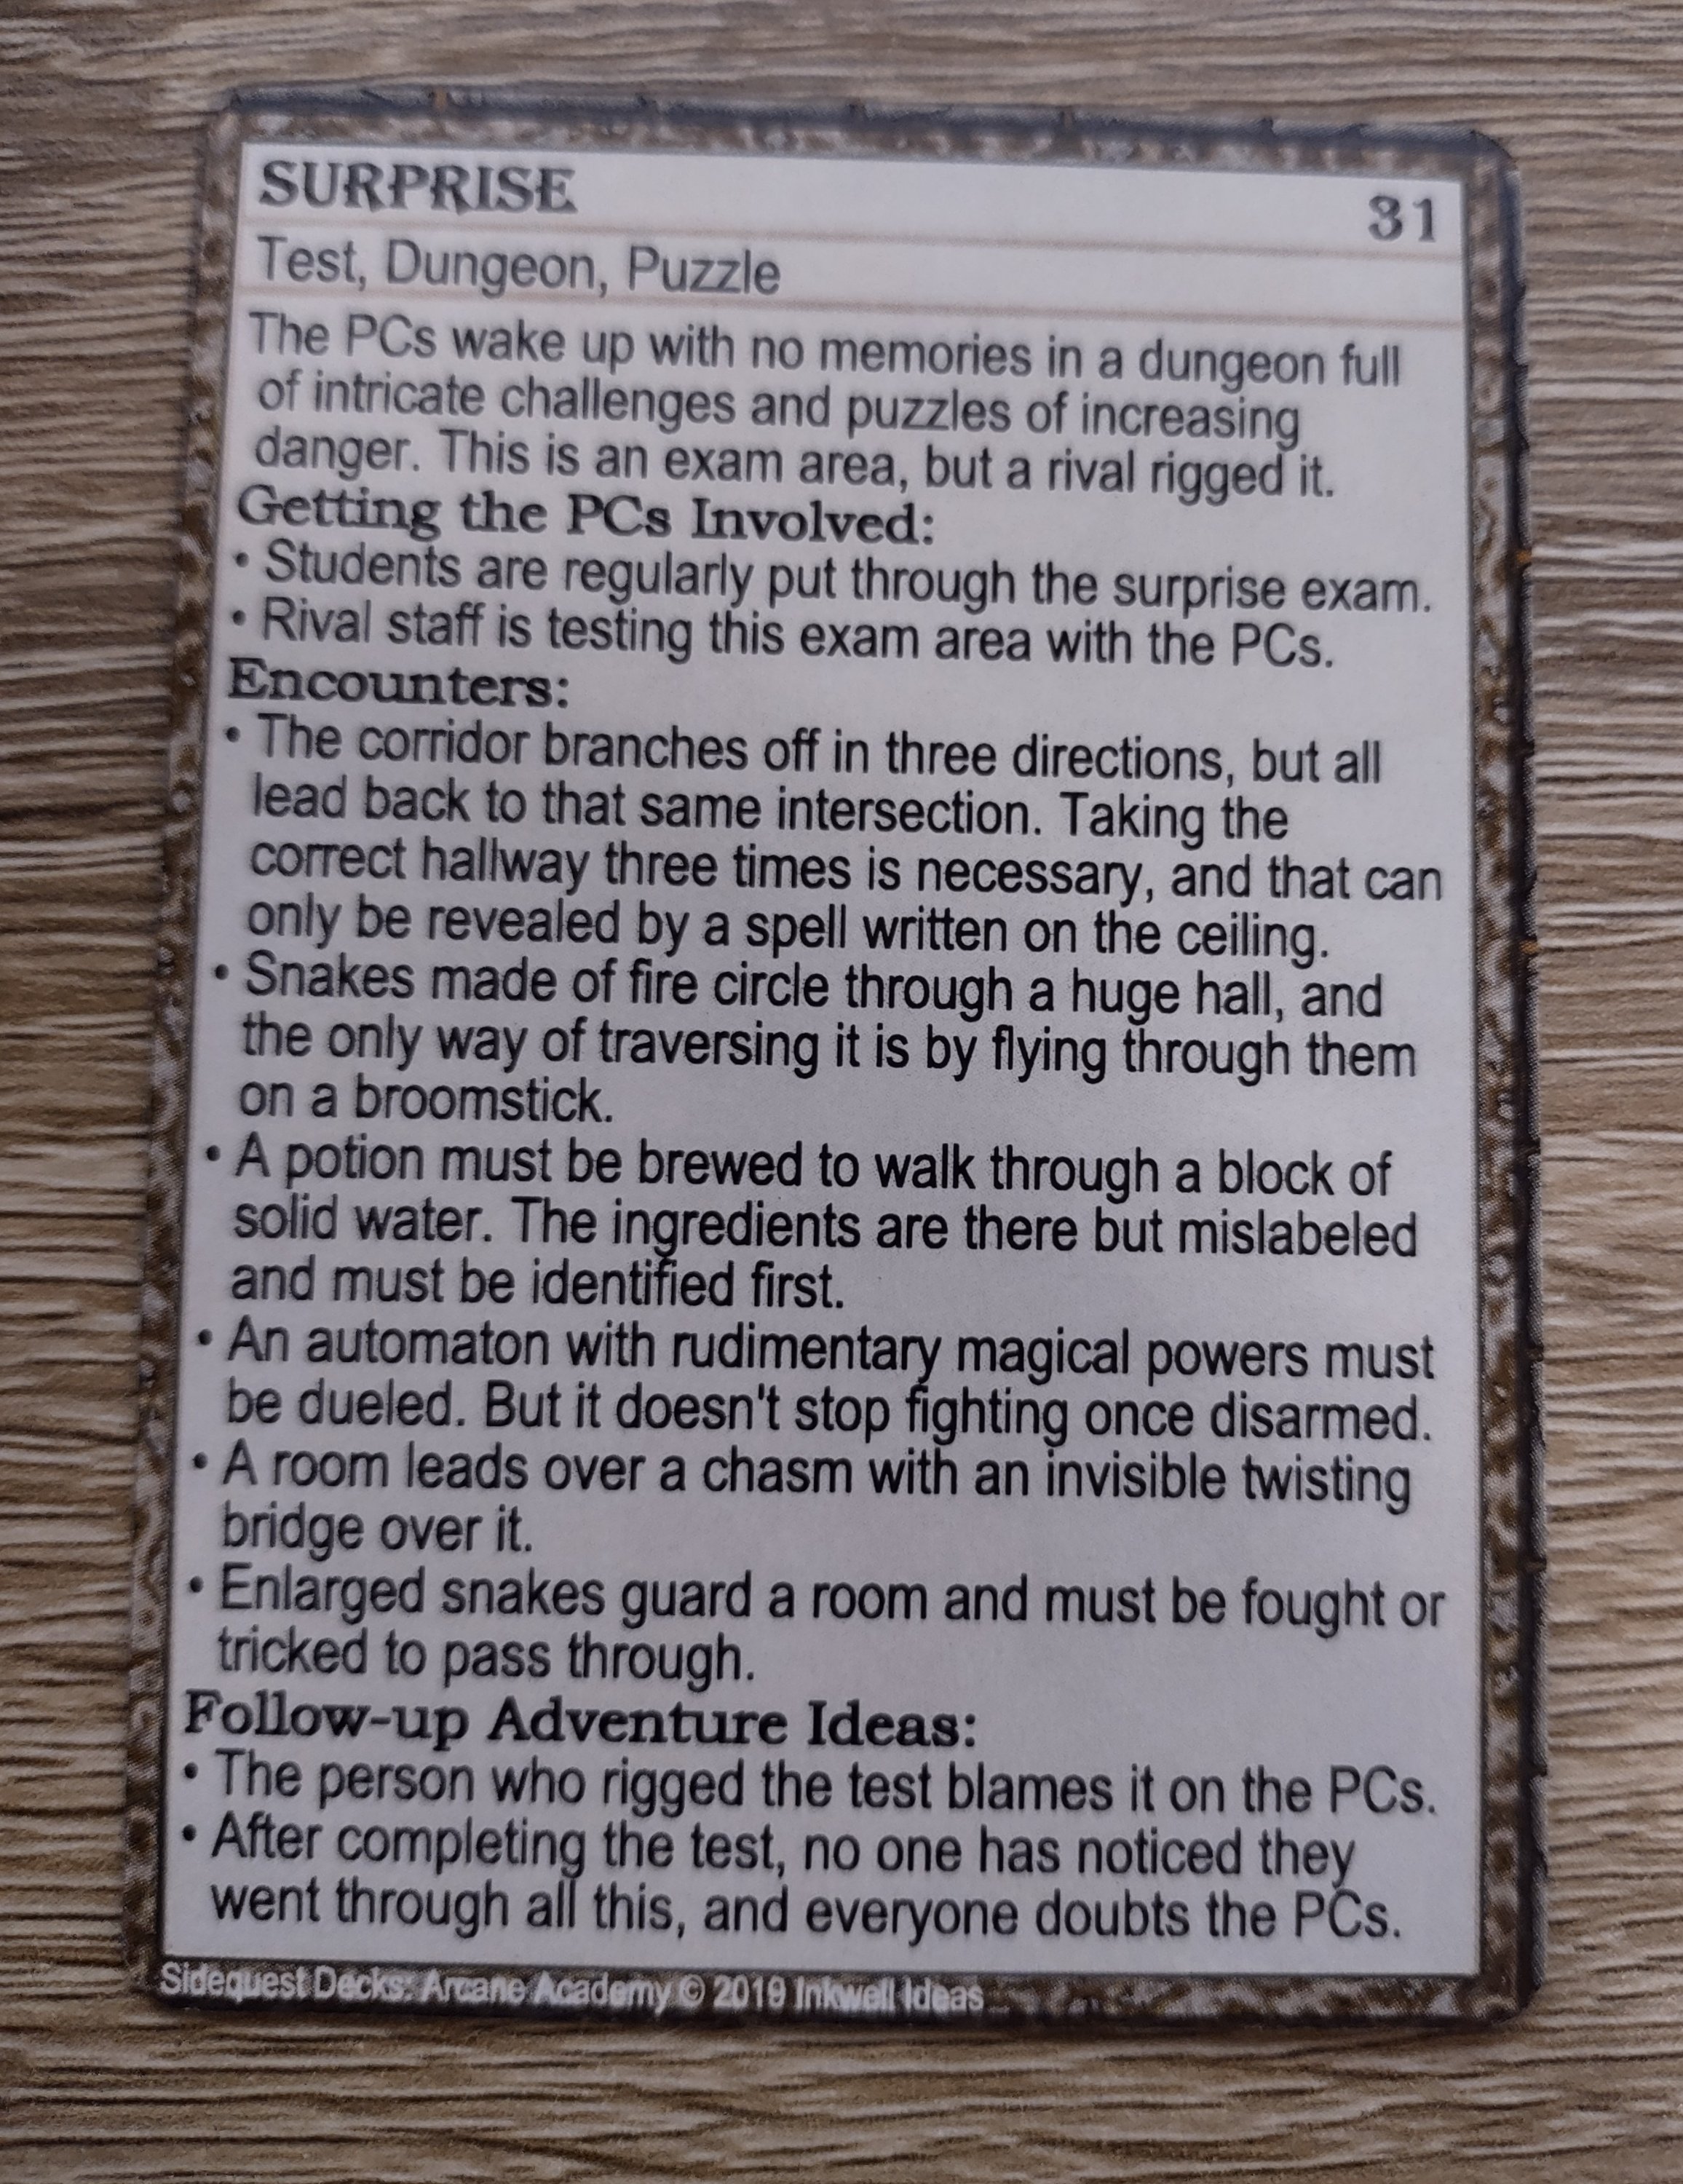 SURPRISE 31
Test, Dungeon, Puzzle
The PCs wake up with no memories in a dungeon full
of intricate challenges and puzzles of increasing
danger. This is an exam area, but a rival rigged it.
Getting the PCs Involved:
• Students are regularly put through the surprise exam.
• Rival staff is testing this exam area with the PCs.
Encounters:
• The corridor branches off in three directions, but all
lead back to that same intersection. Taking the
correct hallway three times is necessary, and that can
only be revealed by a spell written on the ceiling.
• Snakes made of fire circle through a huge hall, and
the only way of traversing it is by flying through them
on a broomstick.
• A potion must be brewed to walk through a block of
solid water. The ingredients are there but mislabeled
and must be identified first.
• An automaton with rudimentary magical powers must
be dueled. But it doesn't stop fighting once disarmed.
• A room leads over a chasm with an invisible twisting
bridge over it.
• Enlarged snakes guard a room and must be fought or
tricked to pass through.
Follow-up Adventure Ideas:
• The person who rigged the test blames it on the PCs.
• After completing the test, no one has noticed they
went through all this, and everyone doubts the PCs.
Sidequest Decks: Arcane Academy © 2019 Inkwell Ideas